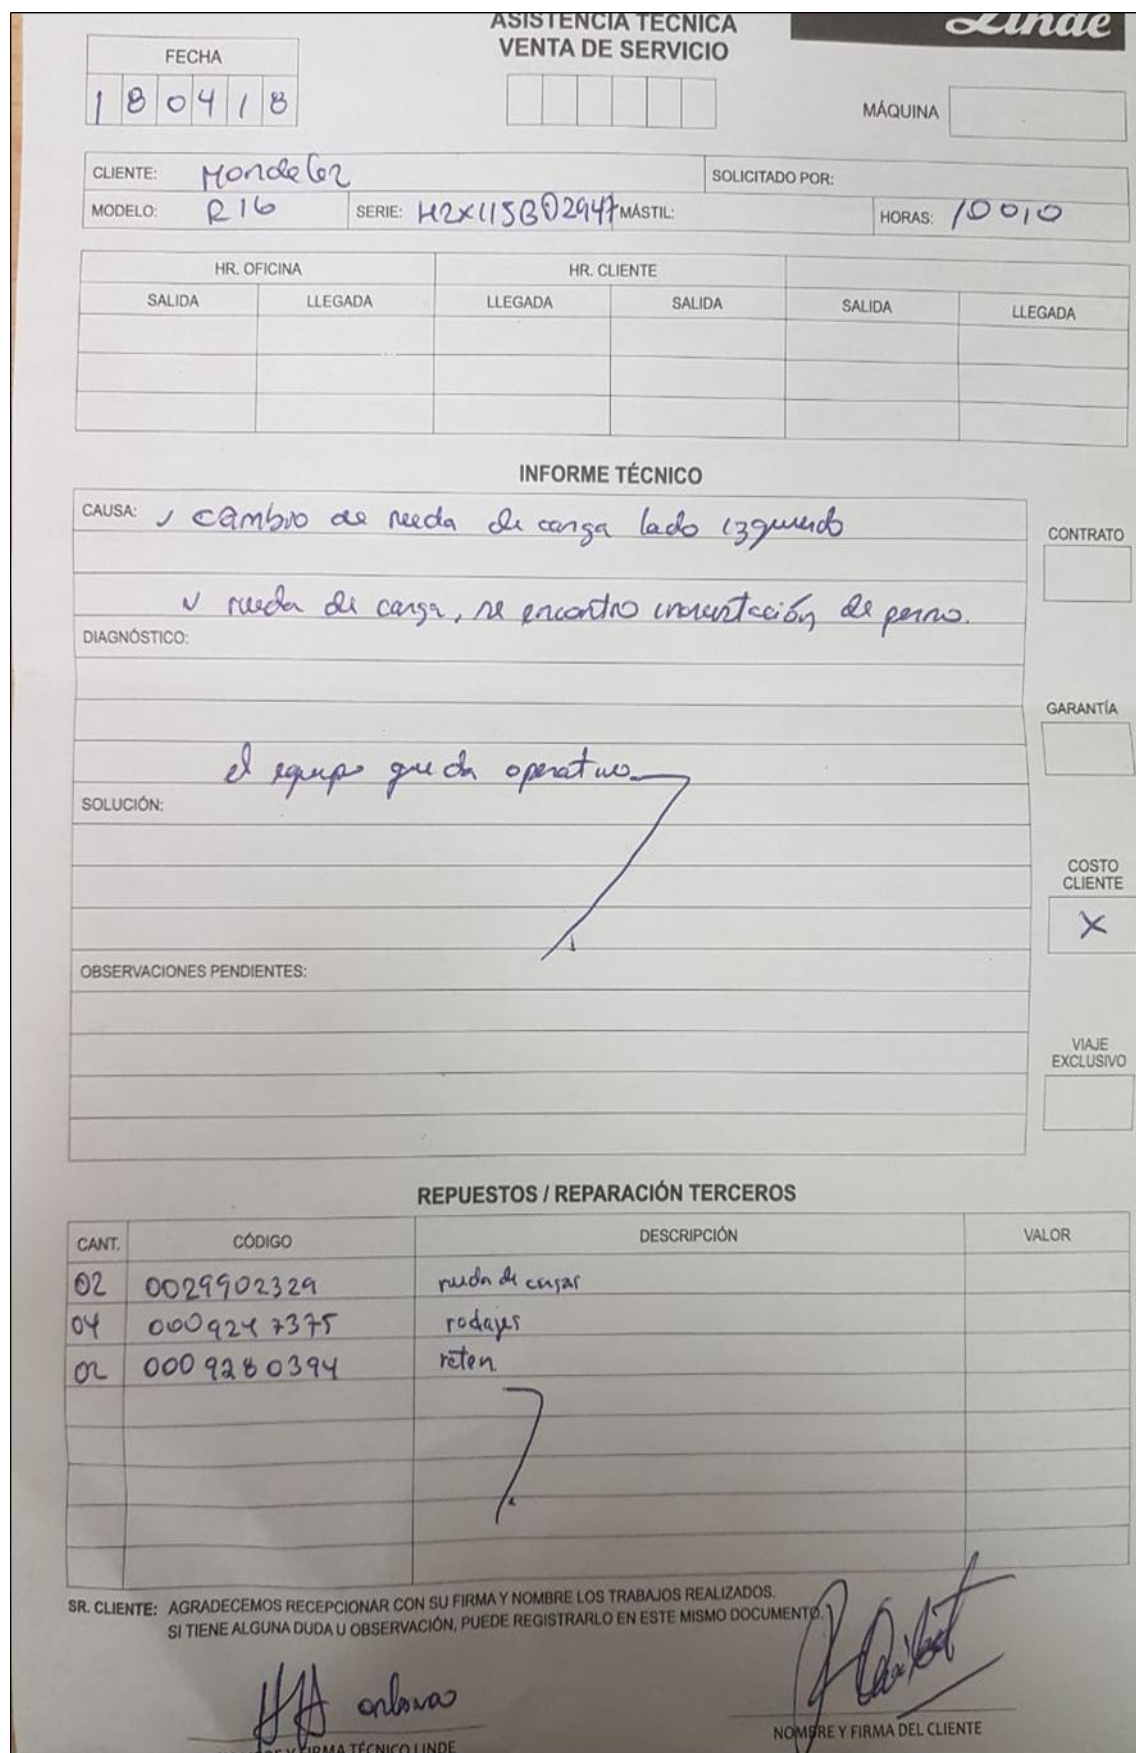 ASISTENCIA TÉCNICA
VENTA DE SERVICIO
Linde
FECHA
180418
MÁQUINA
CLIENTE: Mondelez
SOLICITADO POR:
MODELO: R16 SERIE: H2X115B02947 MÁSTIL: HORAS: 10010
HR. OFICINA HR. CLIENTE
SALIDA LLEGADA LLEGADA SALIDA SALIDA LLEGADA
INFORME TÉCNICO
CAUSA: cambio de rueda de carga lado izquierdo
CONTRATO
rueda de carga, se encontro incrustación de perno.
DIAGNÓSTICO:
GARANTÍA
el equipo queda operativo
SOLUCIÓN:
COSTO
CLIENTE
X
OBSERVACIONES PENDIENTES:
VIAJE
EXCLUSIVO
REPUESTOS / REPARACIÓN TERCEROS
CANT. CÓDIGO DESCRIPCIÓN VALOR
02 0029902329 rueda de
04 0009247375 rodajes
02 0009280394 reten.
SR. CLIENTE: AGRADECEMOS RECEPCIONAR CON SU FIRMA Y NOMBRE LOS TRABAJOS REALIZADOS.
SI TIENE ALGUNA DUDA U OBSERVACIÓN, PUEDE REGISTRARLO EN ESTE MISMO DOCUMENTO.
NOMBRE Y FIRMA DEL CLIENTE
Y FIRMA TÉCNICO LINDE